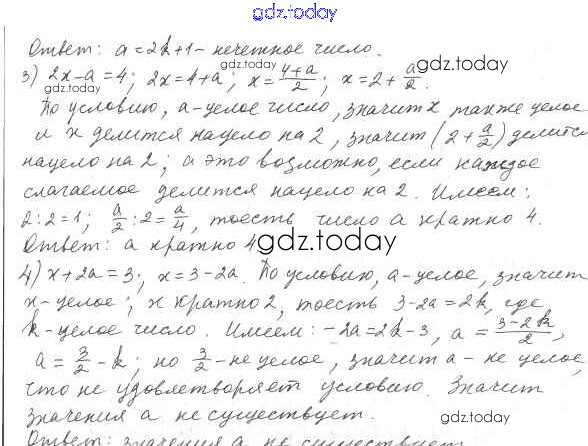 gdz.today
Ответ: a = 2k+1 - нечетное число.
gdz.today
3) 2x-a=4; 2x=4+a; x=\frac{4+a}{2}; x=2+\frac{a}{2}.
gdz.today
По условию, a-целое число, значит x также целое
и x делится нацело на 2, значит (2+\frac{a}{2}) делится
нацело на 2; а это возможно, если каждое
слагаемое делится нацело на 2. Имеем:
2:2=1; \frac{a}{2}:2=\frac{a}{4}, тоесть число a кратно 4.
Ответ: a кратно 4.
gdz.today
4) x+2a=3; x=3-2a. По условию, a-целое, значит
x-целое; x кратно 2, тоесть 3-2a=2k, где
k-целое число. Имеем: -2a=2k-3, a=\frac{3-2k}{2},
a=\frac{3}{2}-k; но \frac{3}{2}-не целое, значит a-не целое,
что не удовлетворяет условию. Значит
значения a не существует.
gdz.today
Ответ: значения a не существует